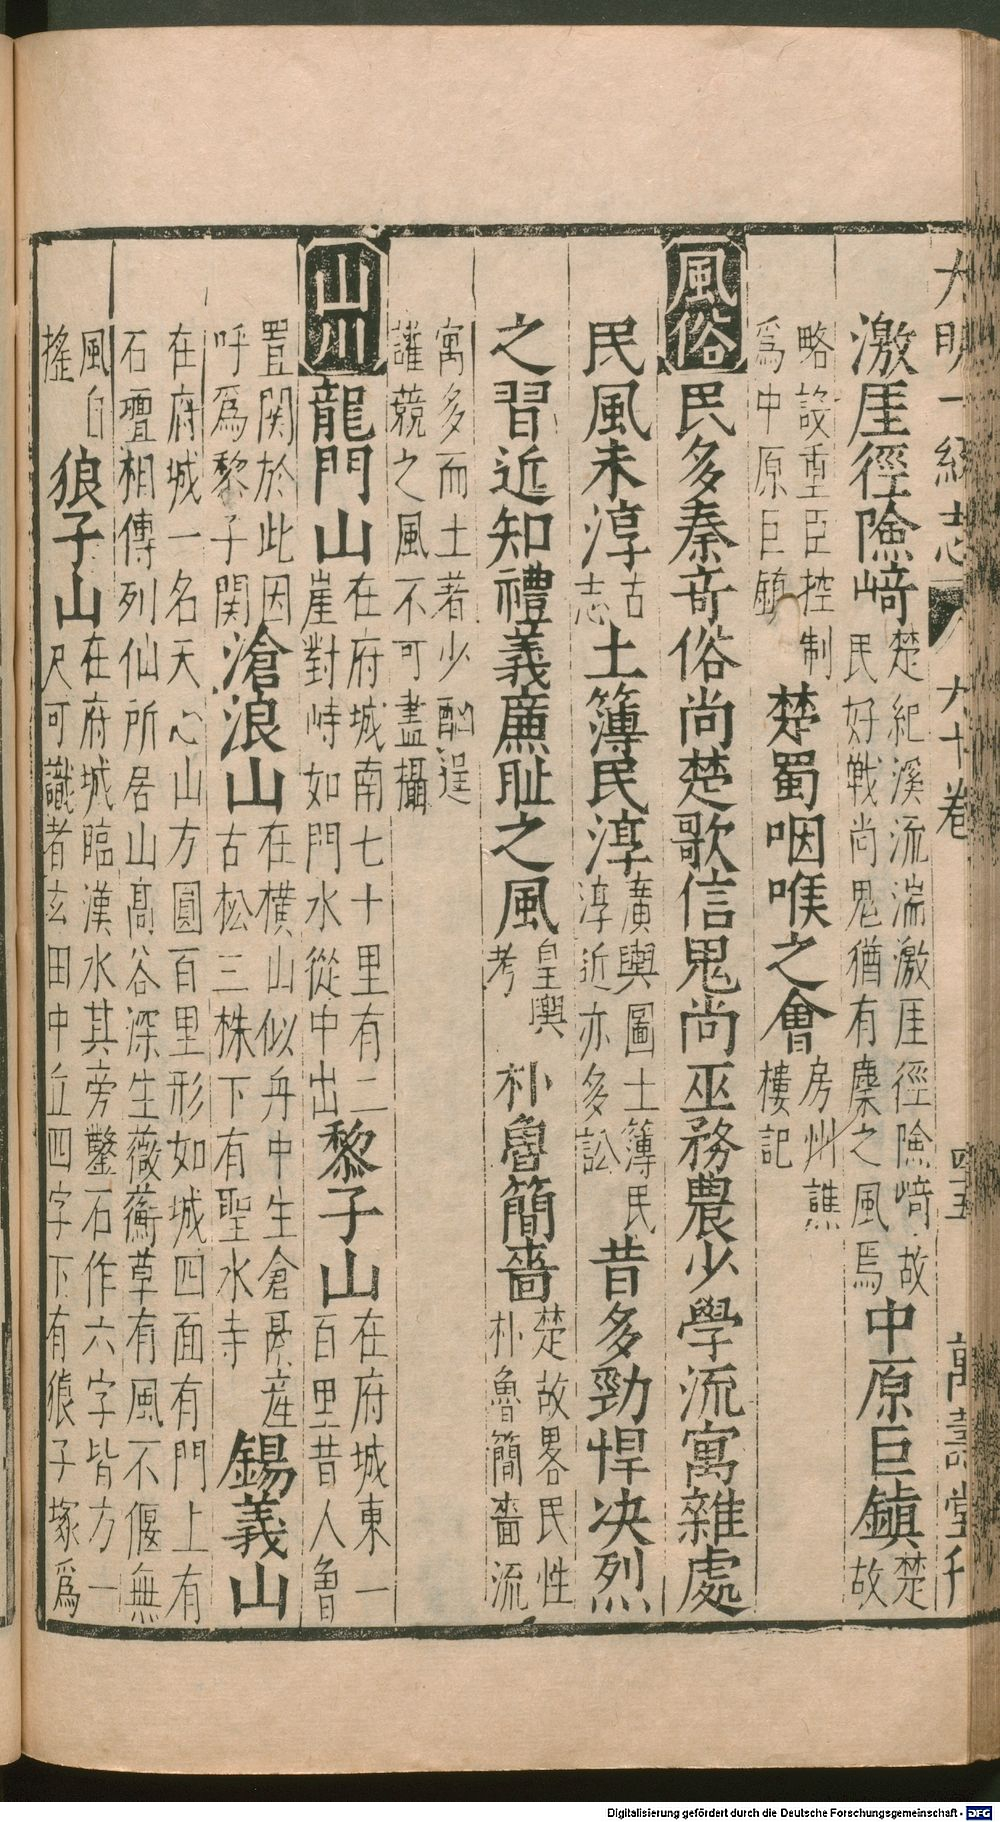 大明一統志 六十卷 萬壽堂刊
激厓徑險﨑 楚紀溪流湍激厓徑險﨑故民好戰尚鬼猶有麇之風焉 中原巨鎮 楚故
略設重臣控制爲中原巨鎮 楚蜀咽喉之會 房州譙樓記
風俗 民多秦音俗尚楚歌信鬼尚巫務農少學流寓雜處
民風未淳 古志 土簿民淳 廣輿圖土簿民淳近亦多訟 昔多勁悍决烈
之習近知禮義廉恥之風 皇輿考 朴魯簡嗇 楚故畧民性朴魯簡嗇流
寓多而土著少酗逞讙競之風不可盡攝
山川 龍門山 在府城南七十里有二崖對峙如門水從中出 黎子山 在府城東一百里昔人魯
置関於此因呼爲黎子関 滄浪山 在橫山似舟中生倉鬲産古松三株下有聖水寺 錫義山
在府城一名天心山方圓百里形如城四面有門上有石壇相傳列仙所居山高谷深生薇蘅草有風不偃無
風自搖 狼子山 在府城臨漢水其旁鑿石作六字皆方一尺可識者玄田中丘四字下有狼子塚爲
Digitalisierung gefördert durch die Deutsche Forschungsgemeinschaft - DFG